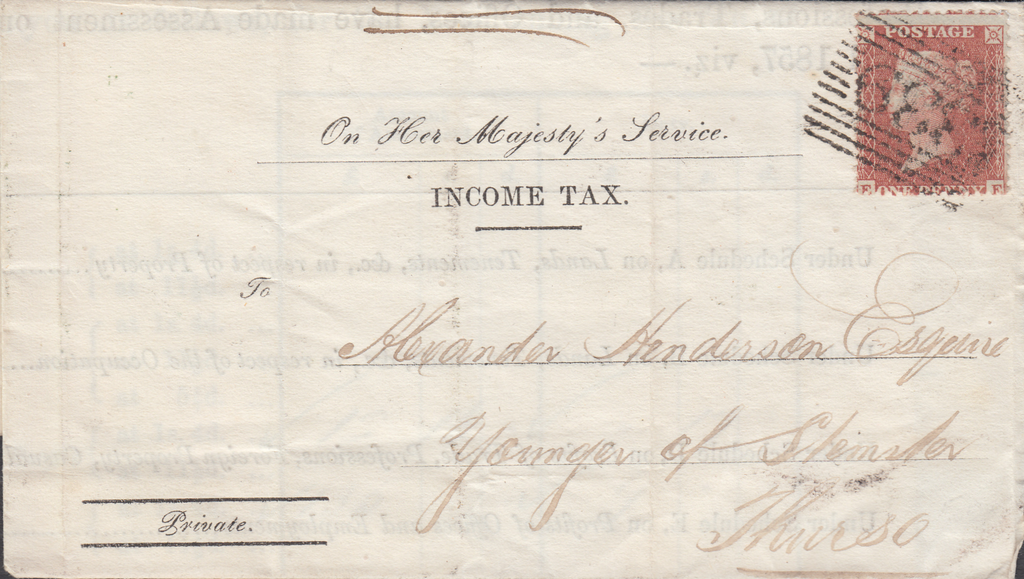 POSTAGE
On Her Majesty's Service.
E ONE PENNY F
INCOME TAX.
To
Alexander Henderson Esquire
Younger of Stemster
Thurso
Private.